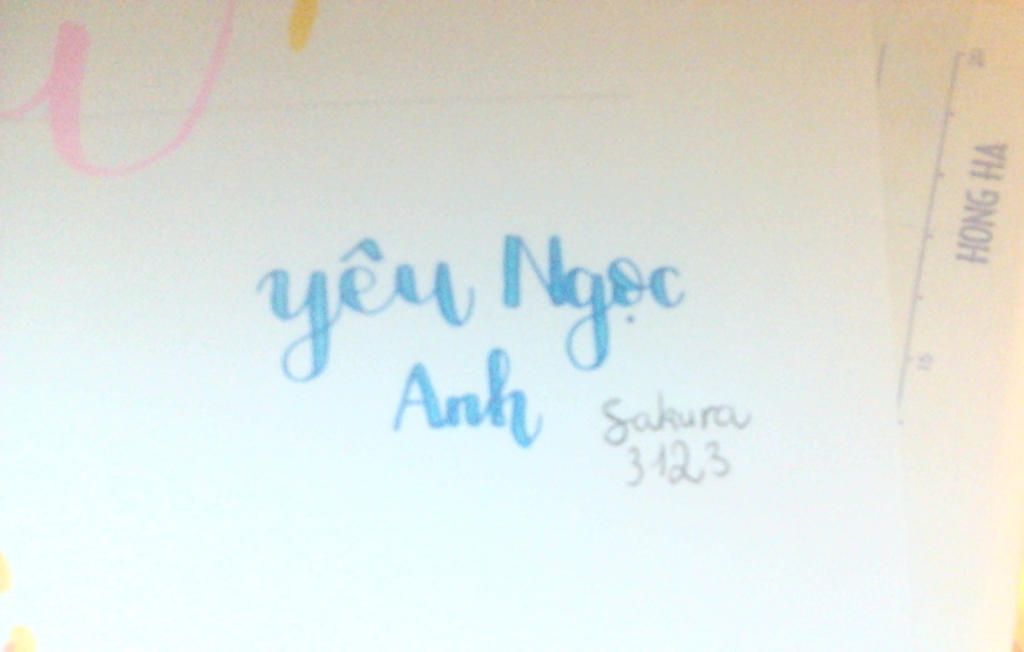 yêu Ngọc
Anh
Sakura
3123
HONG HA
20
15